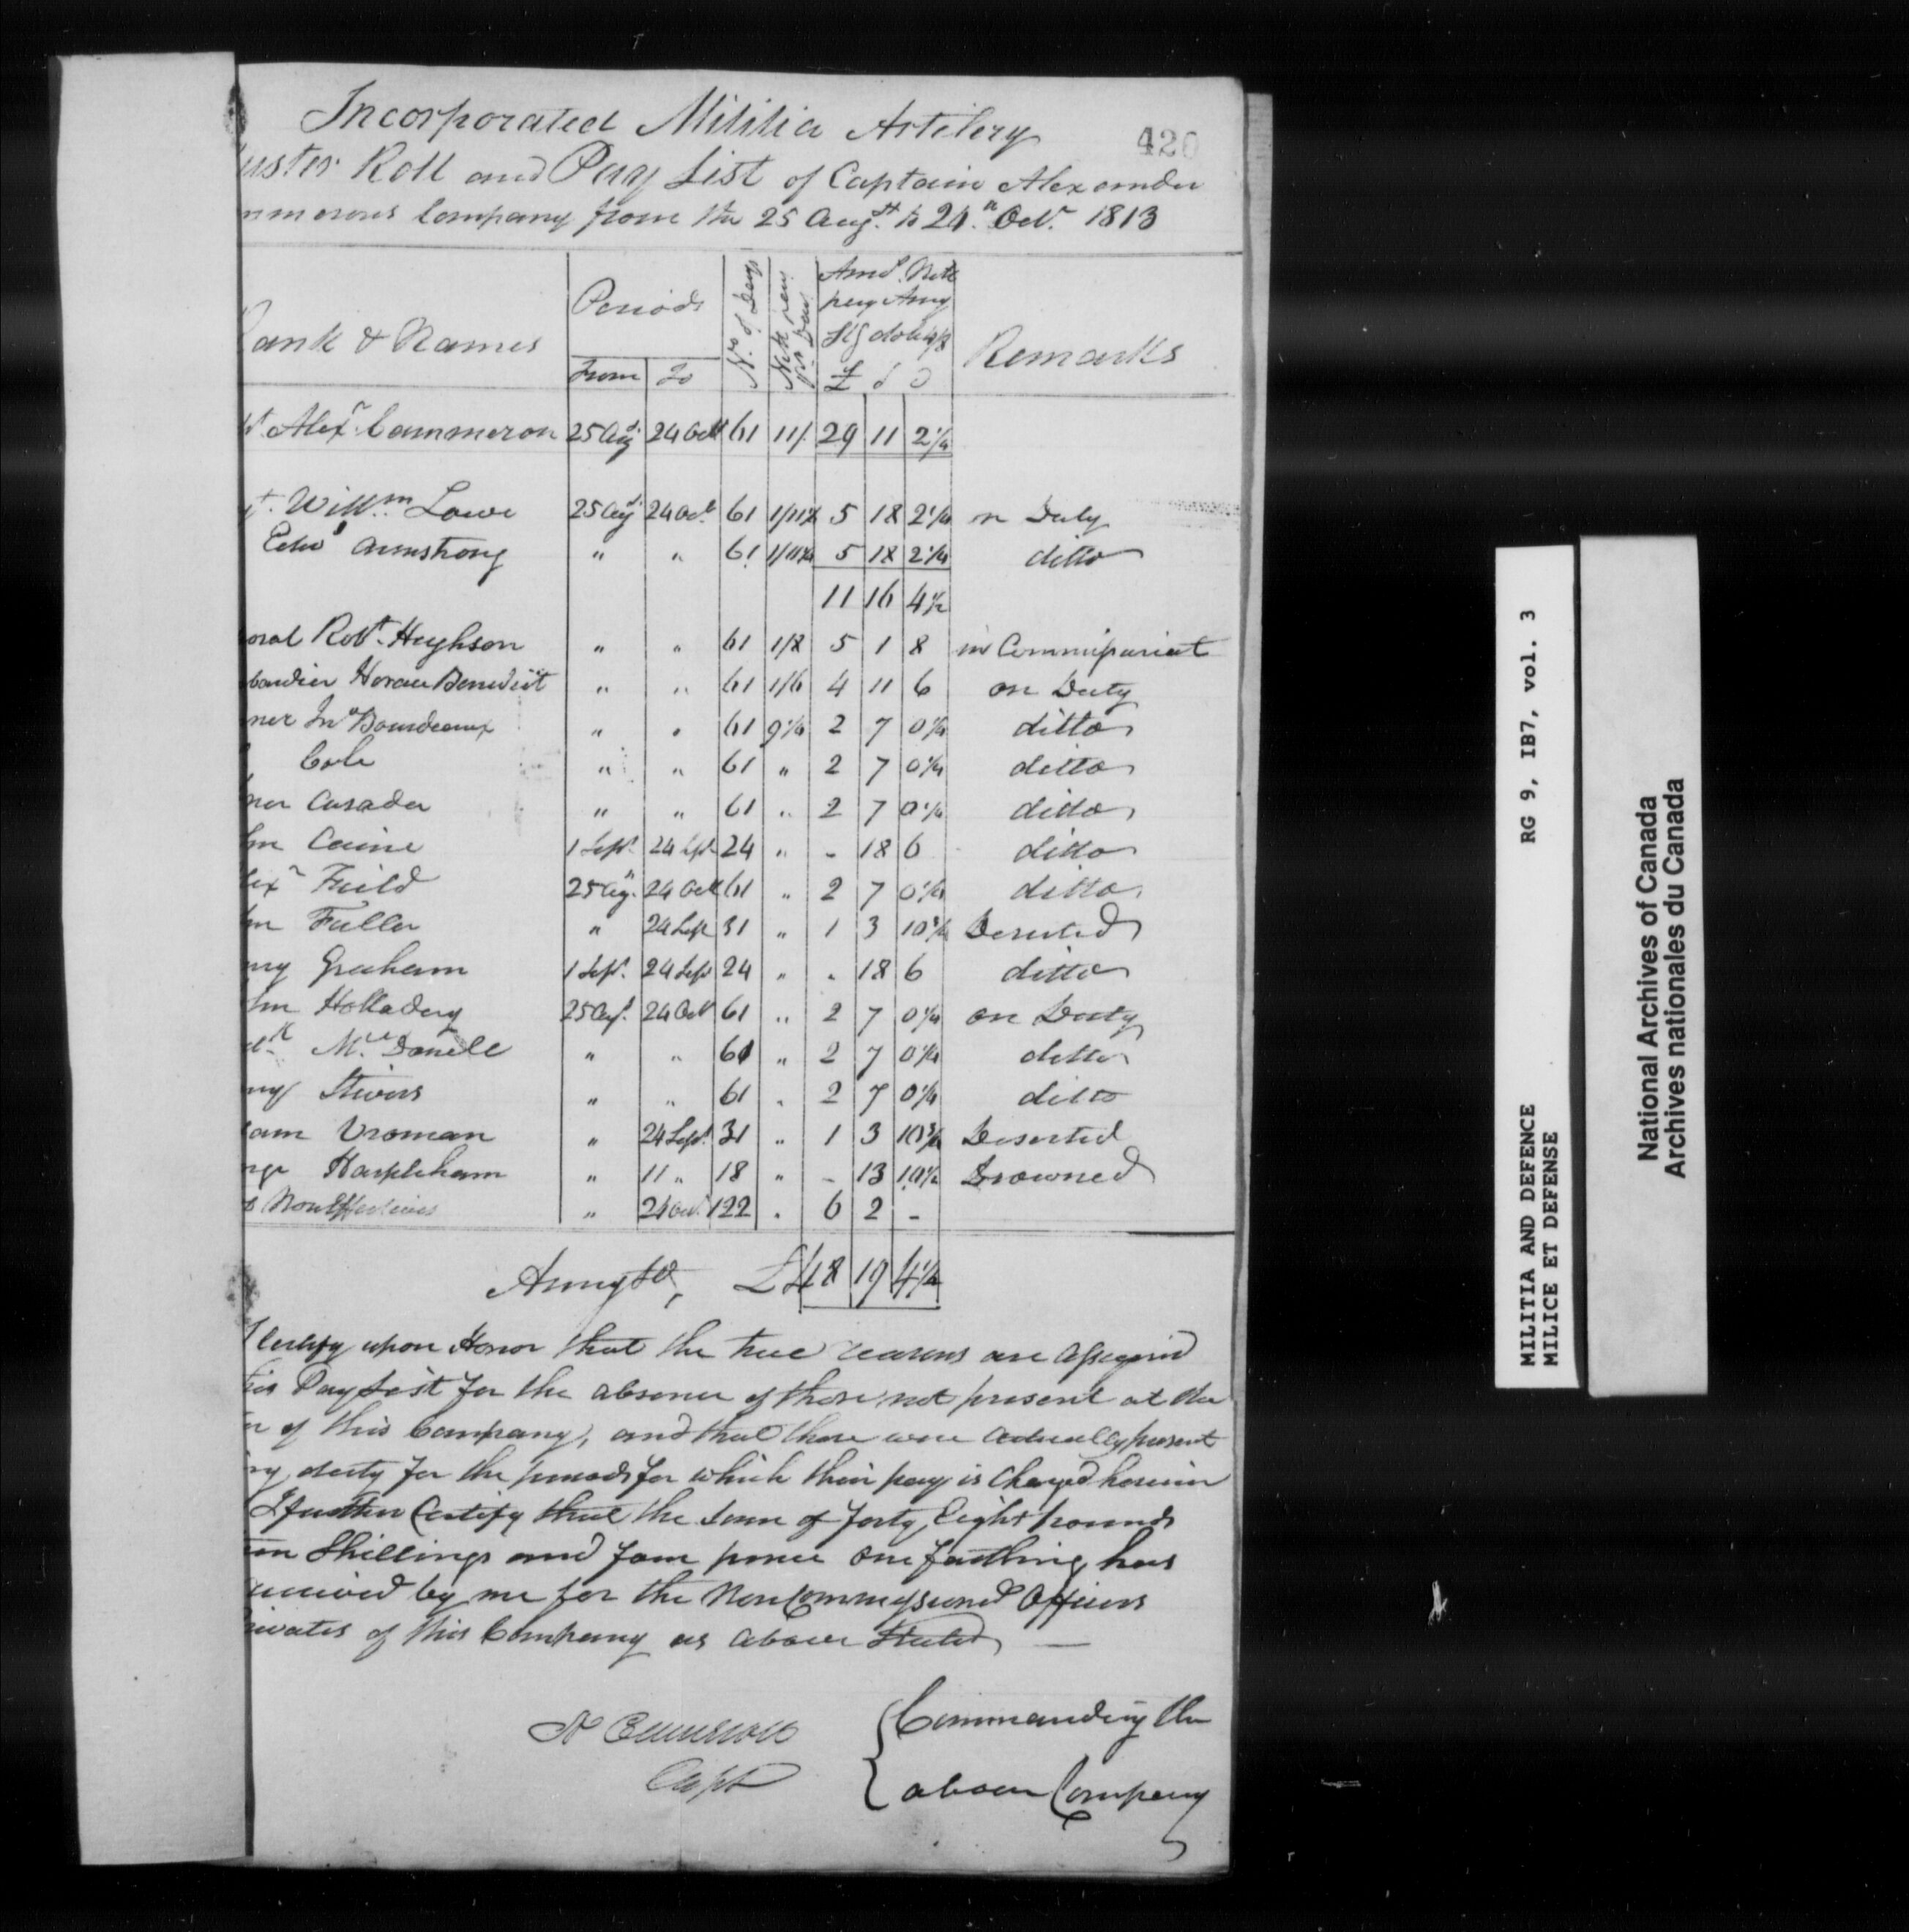 Incorporated Militia Artilery
420
uster Roll and Pay List of Captain Alexander
mmerons Company from the 25 Augst. to 24th Octr. 1813
Rank & Names
Periods
From
To
No. of Days
Nett pay pr. Day
Amt. Nett
pay Army
Stg
£ s d
Remarks
t. Alexr. Cammeron 25 Augt. 24 Octr 61 11/. 29 11 2 1/4
t. Willm. Lowe 25 Augt. 24 Octr. 61 1/11 1/4 5 18 2 1/4 on Duty
Edwd Armstrong " " 61 1/11 1/4 5 18 2 1/4 ditto
11 16 4 1/2
oral Robt. Hughson " " 61 1/8 5 1 8 in Commissariat
bardier Horace Benedict " " 61 1/6 4 11 6 on Duty
ner Jno Bourdeaux " " 61 9 1/4 2 7 0 1/4 ditto
Cole " " 61 " 2 7 0 1/4 ditto
ner Casader " " 61 " 2 7 0 1/4 ditto
hn Caine 1 Sept. 24 Sept. 24 " - 18 6 ditto
lexr Field 25 Aug. 24 Octr 61 " 2 7 0 1/4 ditto
hn Fuller " 24 Sept 31 " 1 3 10 3/4 Deserted
nry Graham 1 Sept. 24 Sept 24 " " 18 6 ditto
hn Holladay 25 Augt. 24 Octr 61 " 2 7 0 1/4 on Duty
McDonell " " 61 " 2 7 0 1/4 ditto
ny Stivers " " 61 " 2 7 0 1/4 ditto
iam Vroman " 24 Sept. 31 " 1 3 10 3/4 Deserted
rge Harpleham " 11 " 18 " - 13 10 1/2 Drowned
2 Noneffectives " 24 Oct. 122 " 6 2 -
Army St, £48 19 4 1/4
I Certify upon Honor that the true reasons are assigned
this Pay List for the absence of those not present at the
er of this Company, and that those were actually present
ng duty for the periods for which their pay is Charged herein
I further Certify that the sum of forty Eight pounds
een Shillings and four pence one farthing has
received by me for the Non Commissioned Officers
rivates of this Company as above Stated —
A Cameron
Capt
Commanding the
above Company
MILITIA AND DEFENCE RG 9, IB7, vol. 3
MILICE ET DEFENSE
National Archives of Canada
Archives nationales du Canada